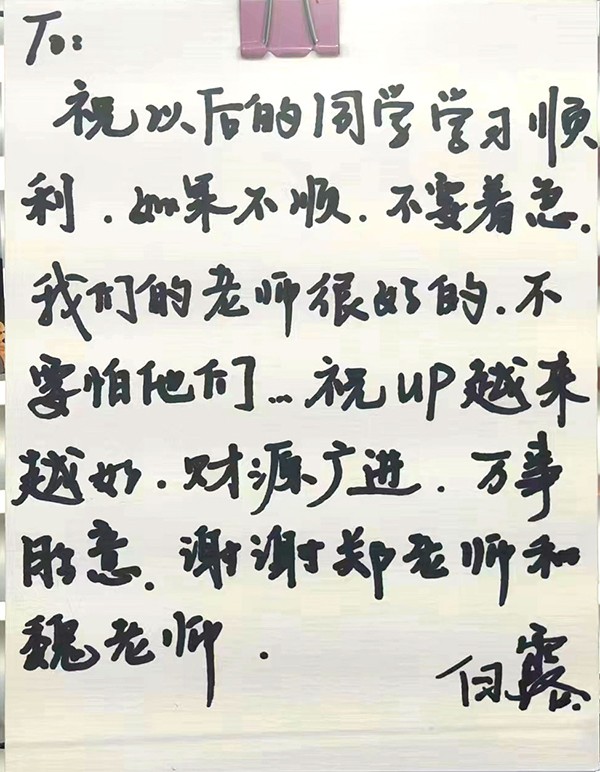 To:
祝以后的同学学习顺
利.如果不顺.不要着急.
我们的老师很好的.不
要怕他们...祝up越来
越好.财源广进.万事
胜意.谢谢郑老师和
魏老师.
露